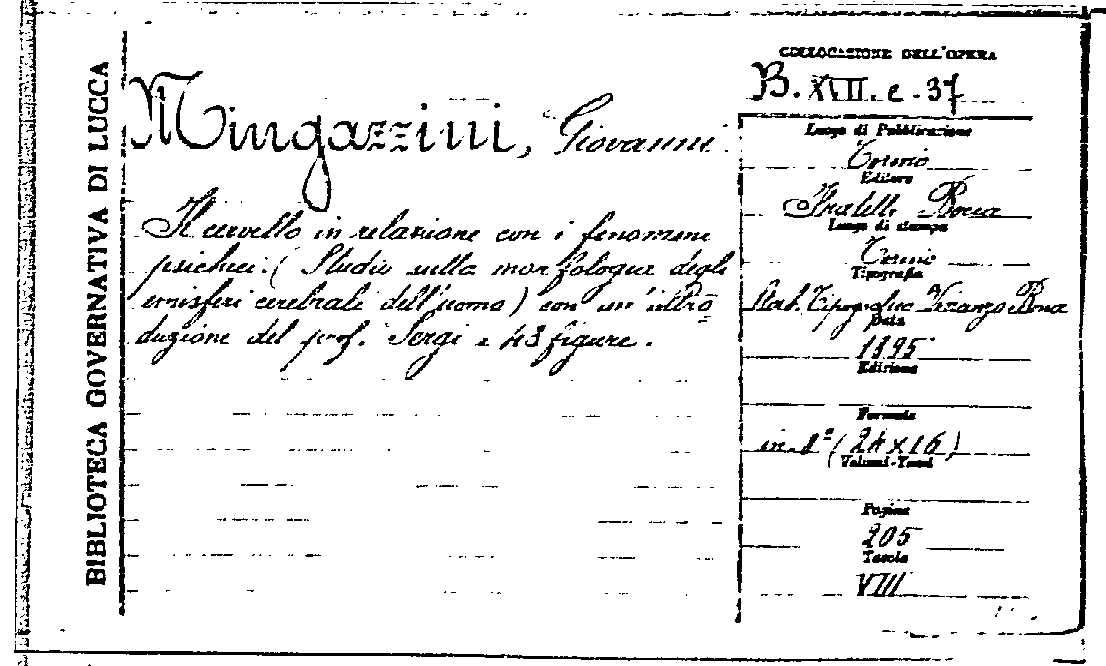 BIBLIOTECA GOVERNATIVA DI LUCCA
Mingazzini, Giovanni
Il cervello in relazione con i fenomeni
psichici. (Studio sulla morfologia degli
emisferi cerebrali dell'uomo) con un'intro=
duzione del prof. Sergi e 43 figure.
COLLOCAZIONE DELL'OPERA
B. XVII. e. 37
Luogo di Pubblicazione
Torino
Editore
Fratelli Bocca
Luogo di stampa
Torino
Tipografia
Stab. Tipografico Vincenzo Bona
Data
1895
Edizione
Formato
in-8° (24x16)
Volumi-Tomi
Pagine
205
Tavole
VIII